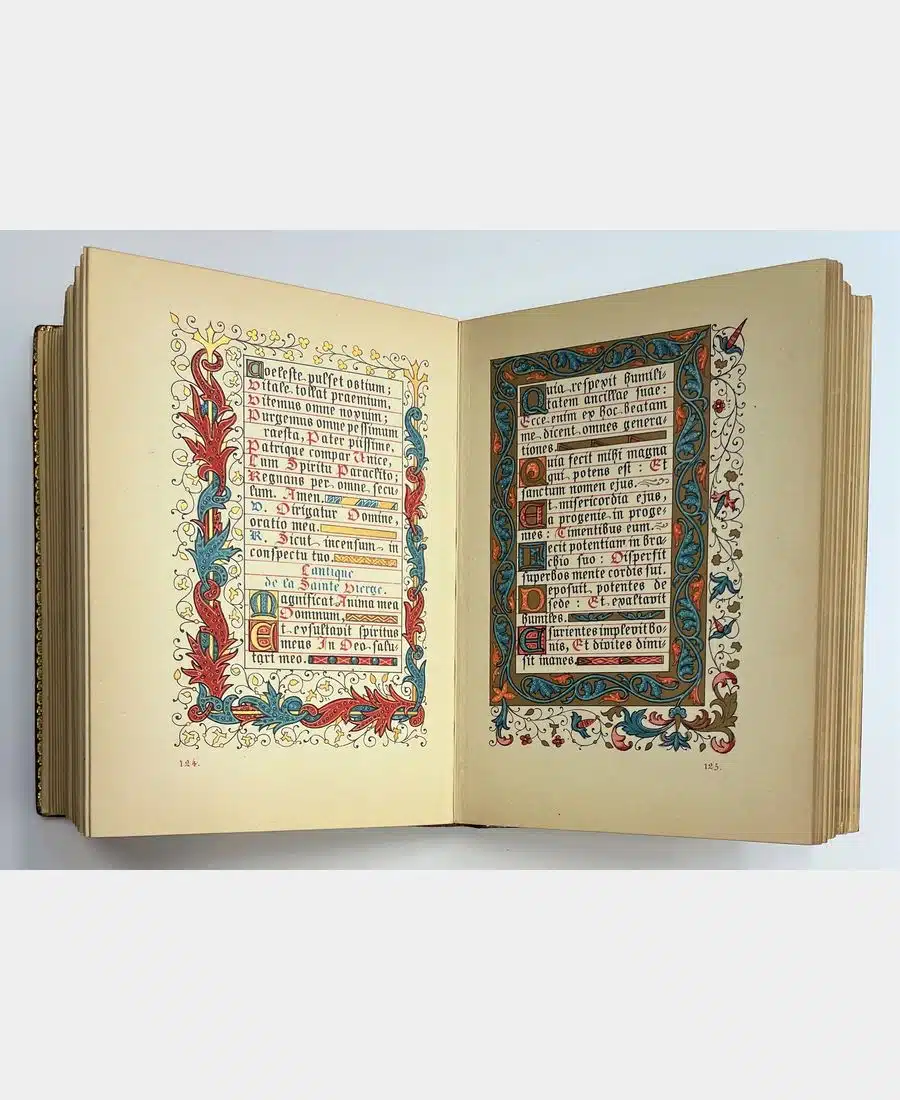 Coeleste pulset ostium:
Vitale tollat praemium,
Vitemus omne noxium;
Purgemus omne pessimum
Praesta, Pater piissime,
Patrique compar Unice,
Cum Spiritu Paraclito;
Regnans per omne secu
lum. Amen.
V. Dirigatur Domine,
oratio mea.
R. Sicut incensum in
conspectu tuo.
Cantique
de la Sainte Vierge.
Magnificat Anima mea
Dominum,
Et exsultavit spiritus
meus In Deo salu-
tari meo.
124.
Quia respexit humili-
tatem ancillae suae:
Ecce enim ex hoc beatam
me dicent omnes genera
tiones.
Quia fecit mihi magna
qui potens est: Et
sanctum nomen ejus.
Et misericordia ejus
a progenie in proge-
nies: Timentibus eum.
Fecit potentiam in bra
chio suo: Dispersit
superbos mente cordis sui.
Deposuit potentes de
sede: Et exaltavit
humiles.
Esurientes implevit bo-
nis, Et divites dimi-
sit inanes.
125.